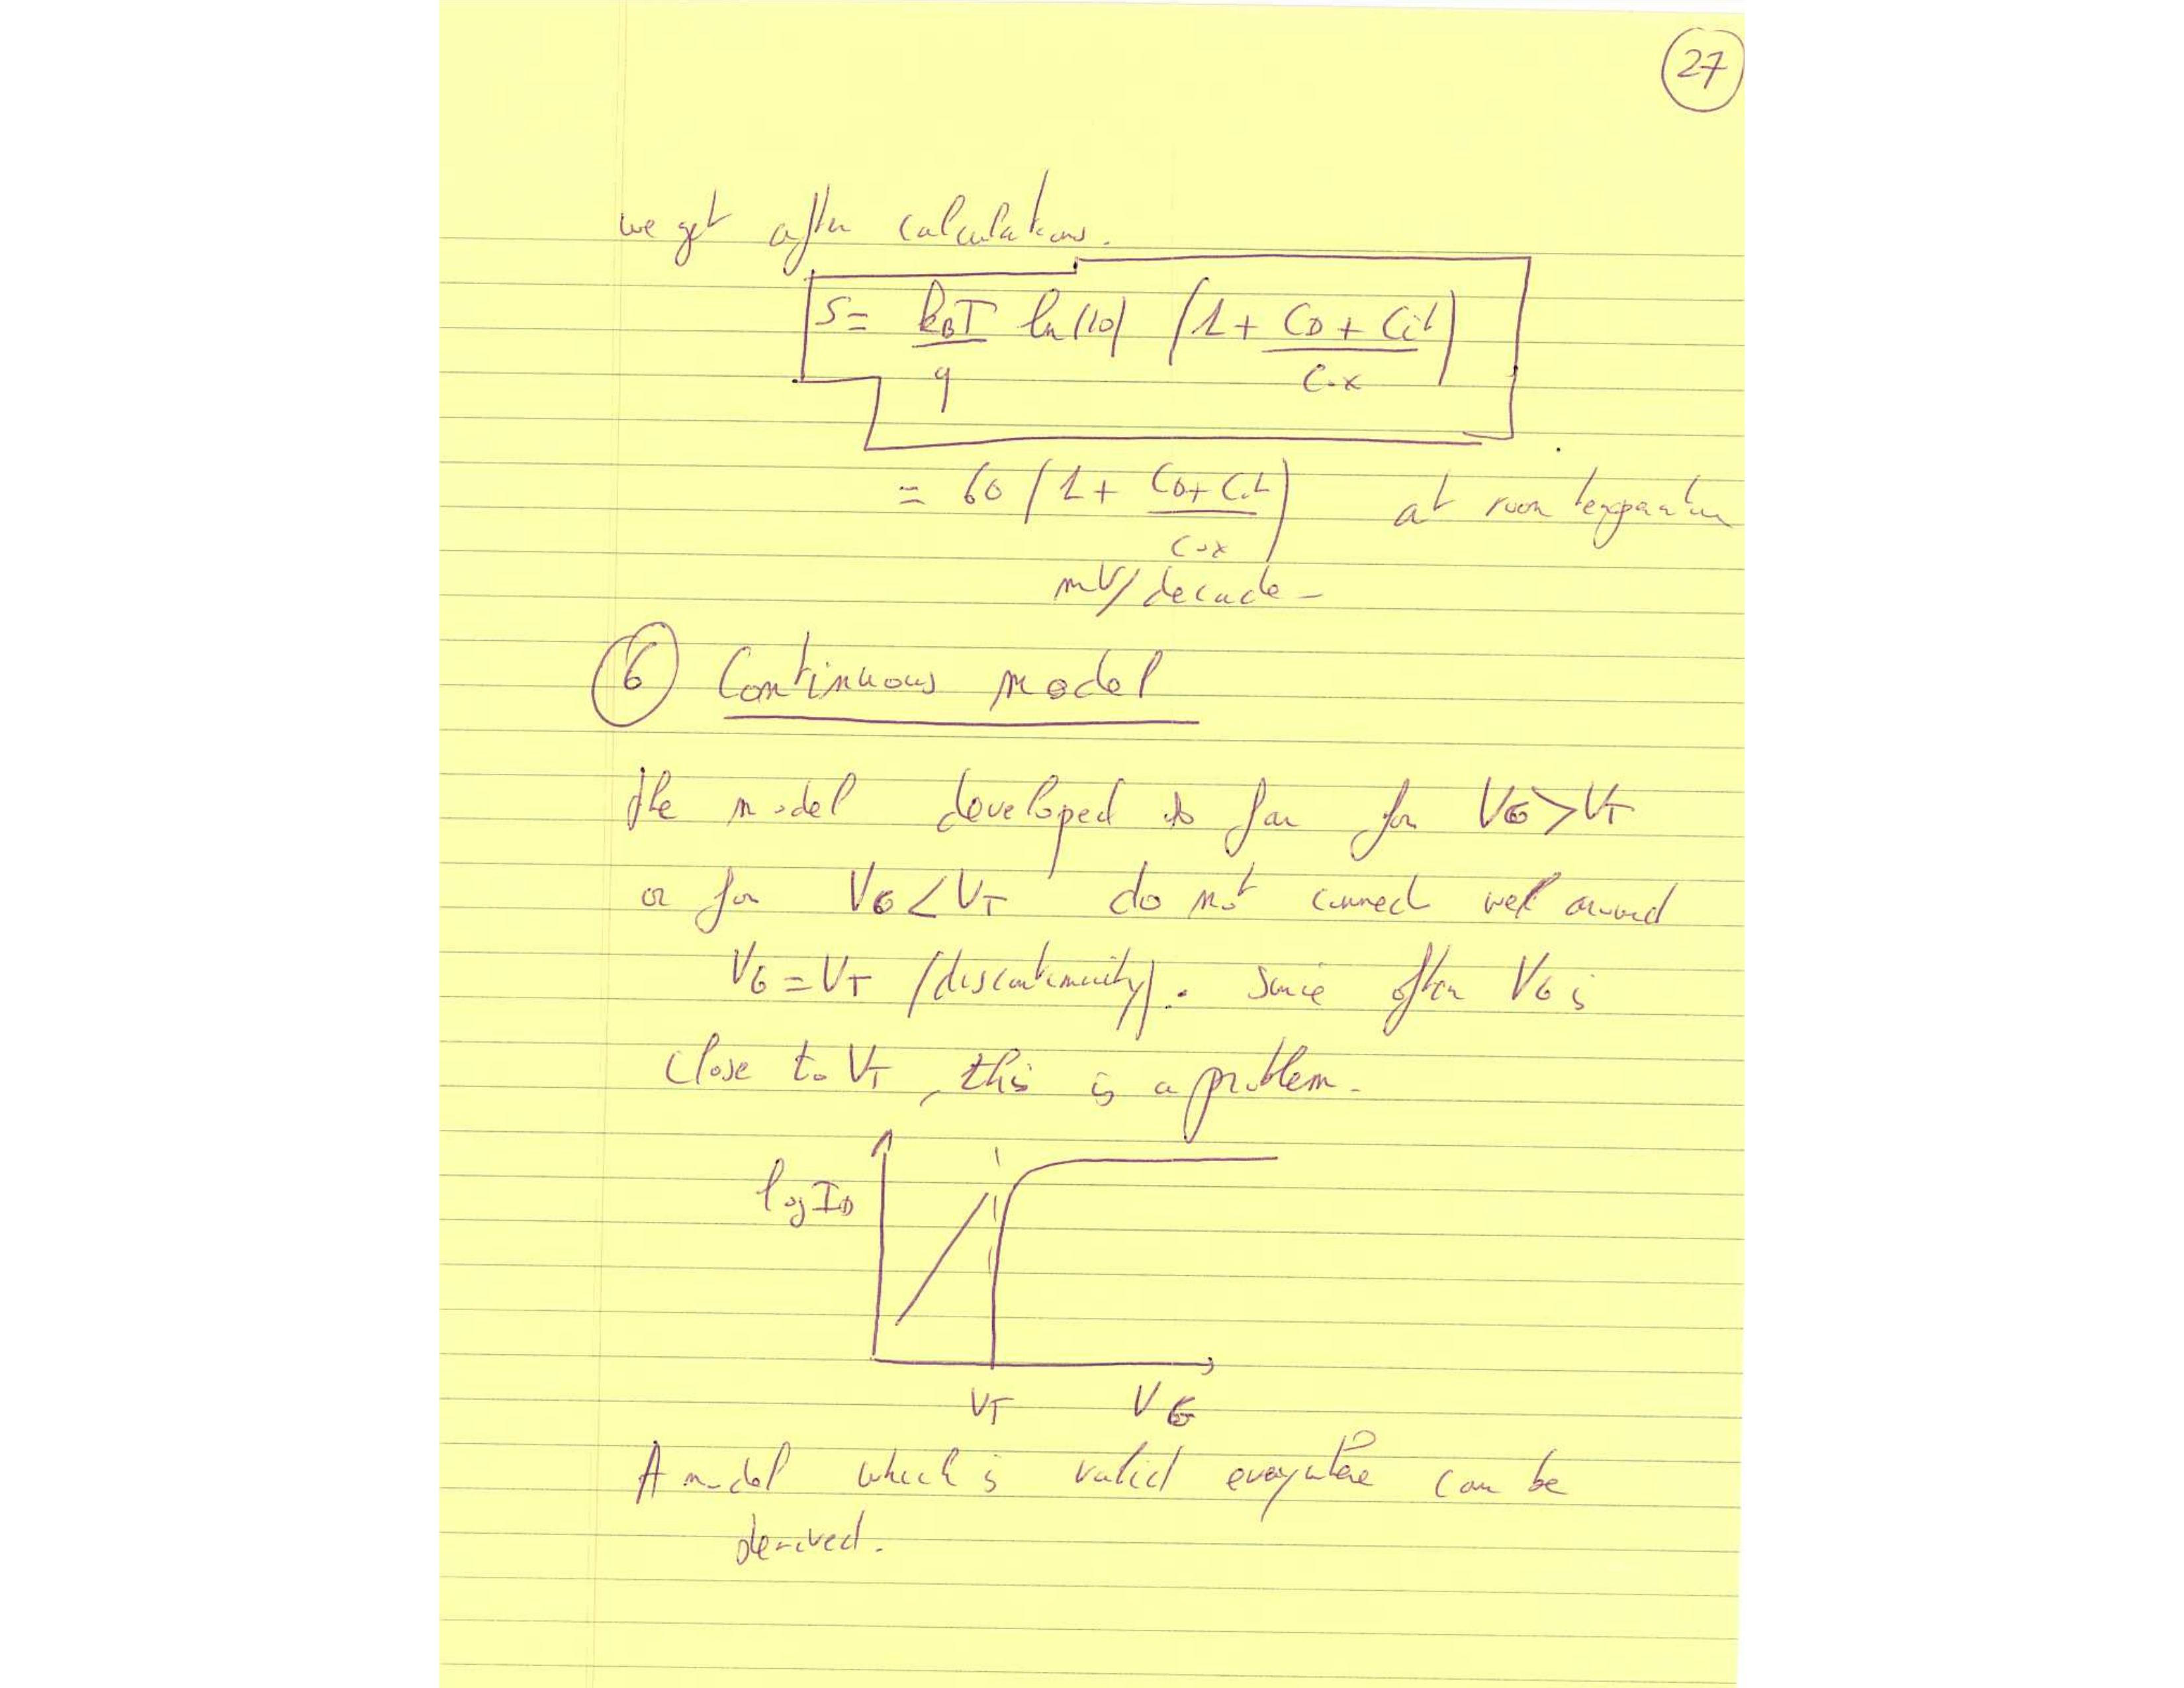 27
we get after calculations.
S = kBT/q ln(10) (1 + (CD + Cit)/Cox)
= 60 (1 + (CD + Cit)/Cox) at room temperature
mV/decade -
6 Continuous model
the model developed so far for VG>VT
or for VG<VT do not connect well around
VG = VT (discontinuity). Since often VG is
close to VT, this is a problem.
log ID
VT VG
A model which is valid everywhere can be
derived.